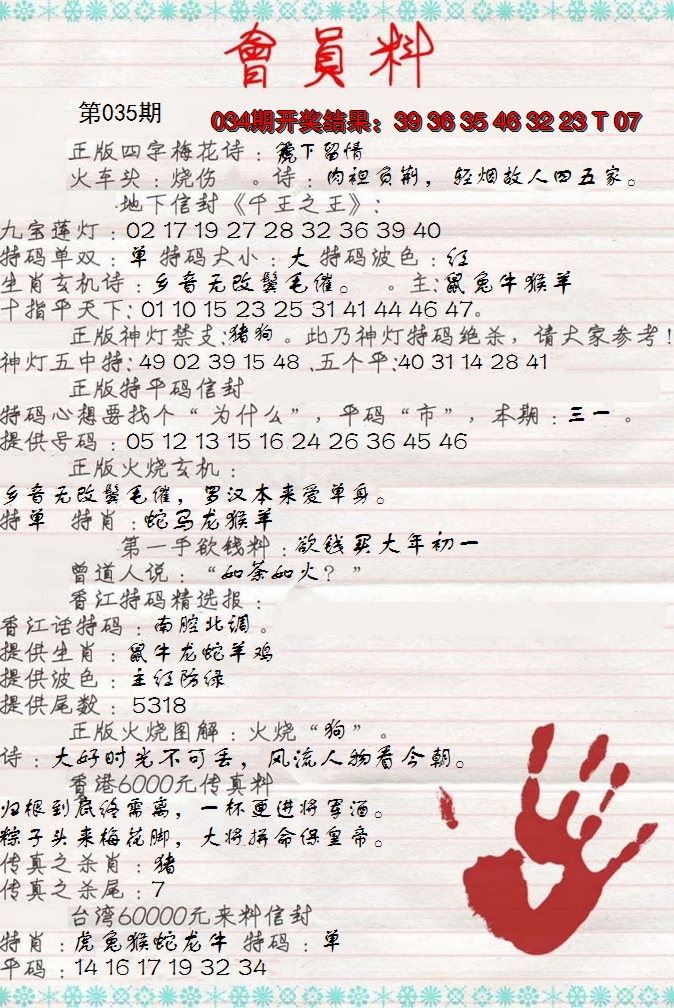 會員料
第035期
034期开奖结果：39 36 35 46 32 23 T 07
正版四字梅花诗：裙下留情
火车头：烧伤 。诗：肉袒负荆，轻烟故人四五家。
地下信封《千王之王》：
九宝莲灯：02 17 19 27 28 32 36 39 40
特码单双：单 特码大小：大 特码波色：红
生肖玄机诗：乡音无改鬓毛催。 。主：鼠兔牛猴羊
十指平天下：01 10 15 23 25 31 41 44 46 47。
正版神灯禁支：猪狗。此乃神灯特码绝杀，请大家参考！
神灯五中特：49 02 39 15 48 .五个平：40 31 14 28 41
正版特平码信封
特码心想要找个“为什么”，平码“市”，本期：三一。
提供号码：05 12 13 15 16 24 26 36 45 46
正版火烧玄机：
乡音无改鬓毛催，罗汉本来爱单身。
特单 特肖：蛇马龙猴羊
第一手欲钱料：欲钱买大年初一
曾道人说：“如荼如火？”
香江特码精选报：
香江话特码：南腔北调。
提供生肖：鼠牛龙蛇羊鸡
提供波色：主红防绿
提供尾数：5318
正版火烧图解：火烧“狗”。
诗：大好时光不可丢，风流人物看今朝。
香港6000元传真料
归根到底终需离，一杯更进将军酒。
粽子头来梅花脚，大将拼命保皇帝。
传真之杀肖：猪
传真之杀尾：7
台湾60000元来料信封
特肖：虎兔猴蛇龙牛 特码：单
平码：14 16 17 19 32 34